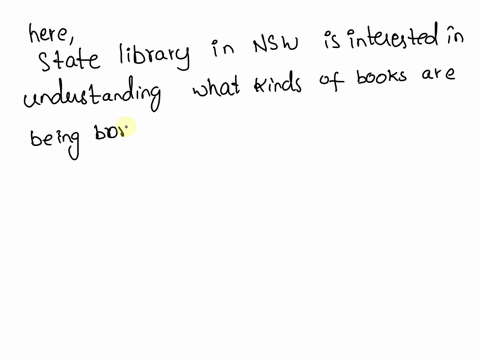 here,
State library in NSW is interested in
understanding what kinds of books are
being bor